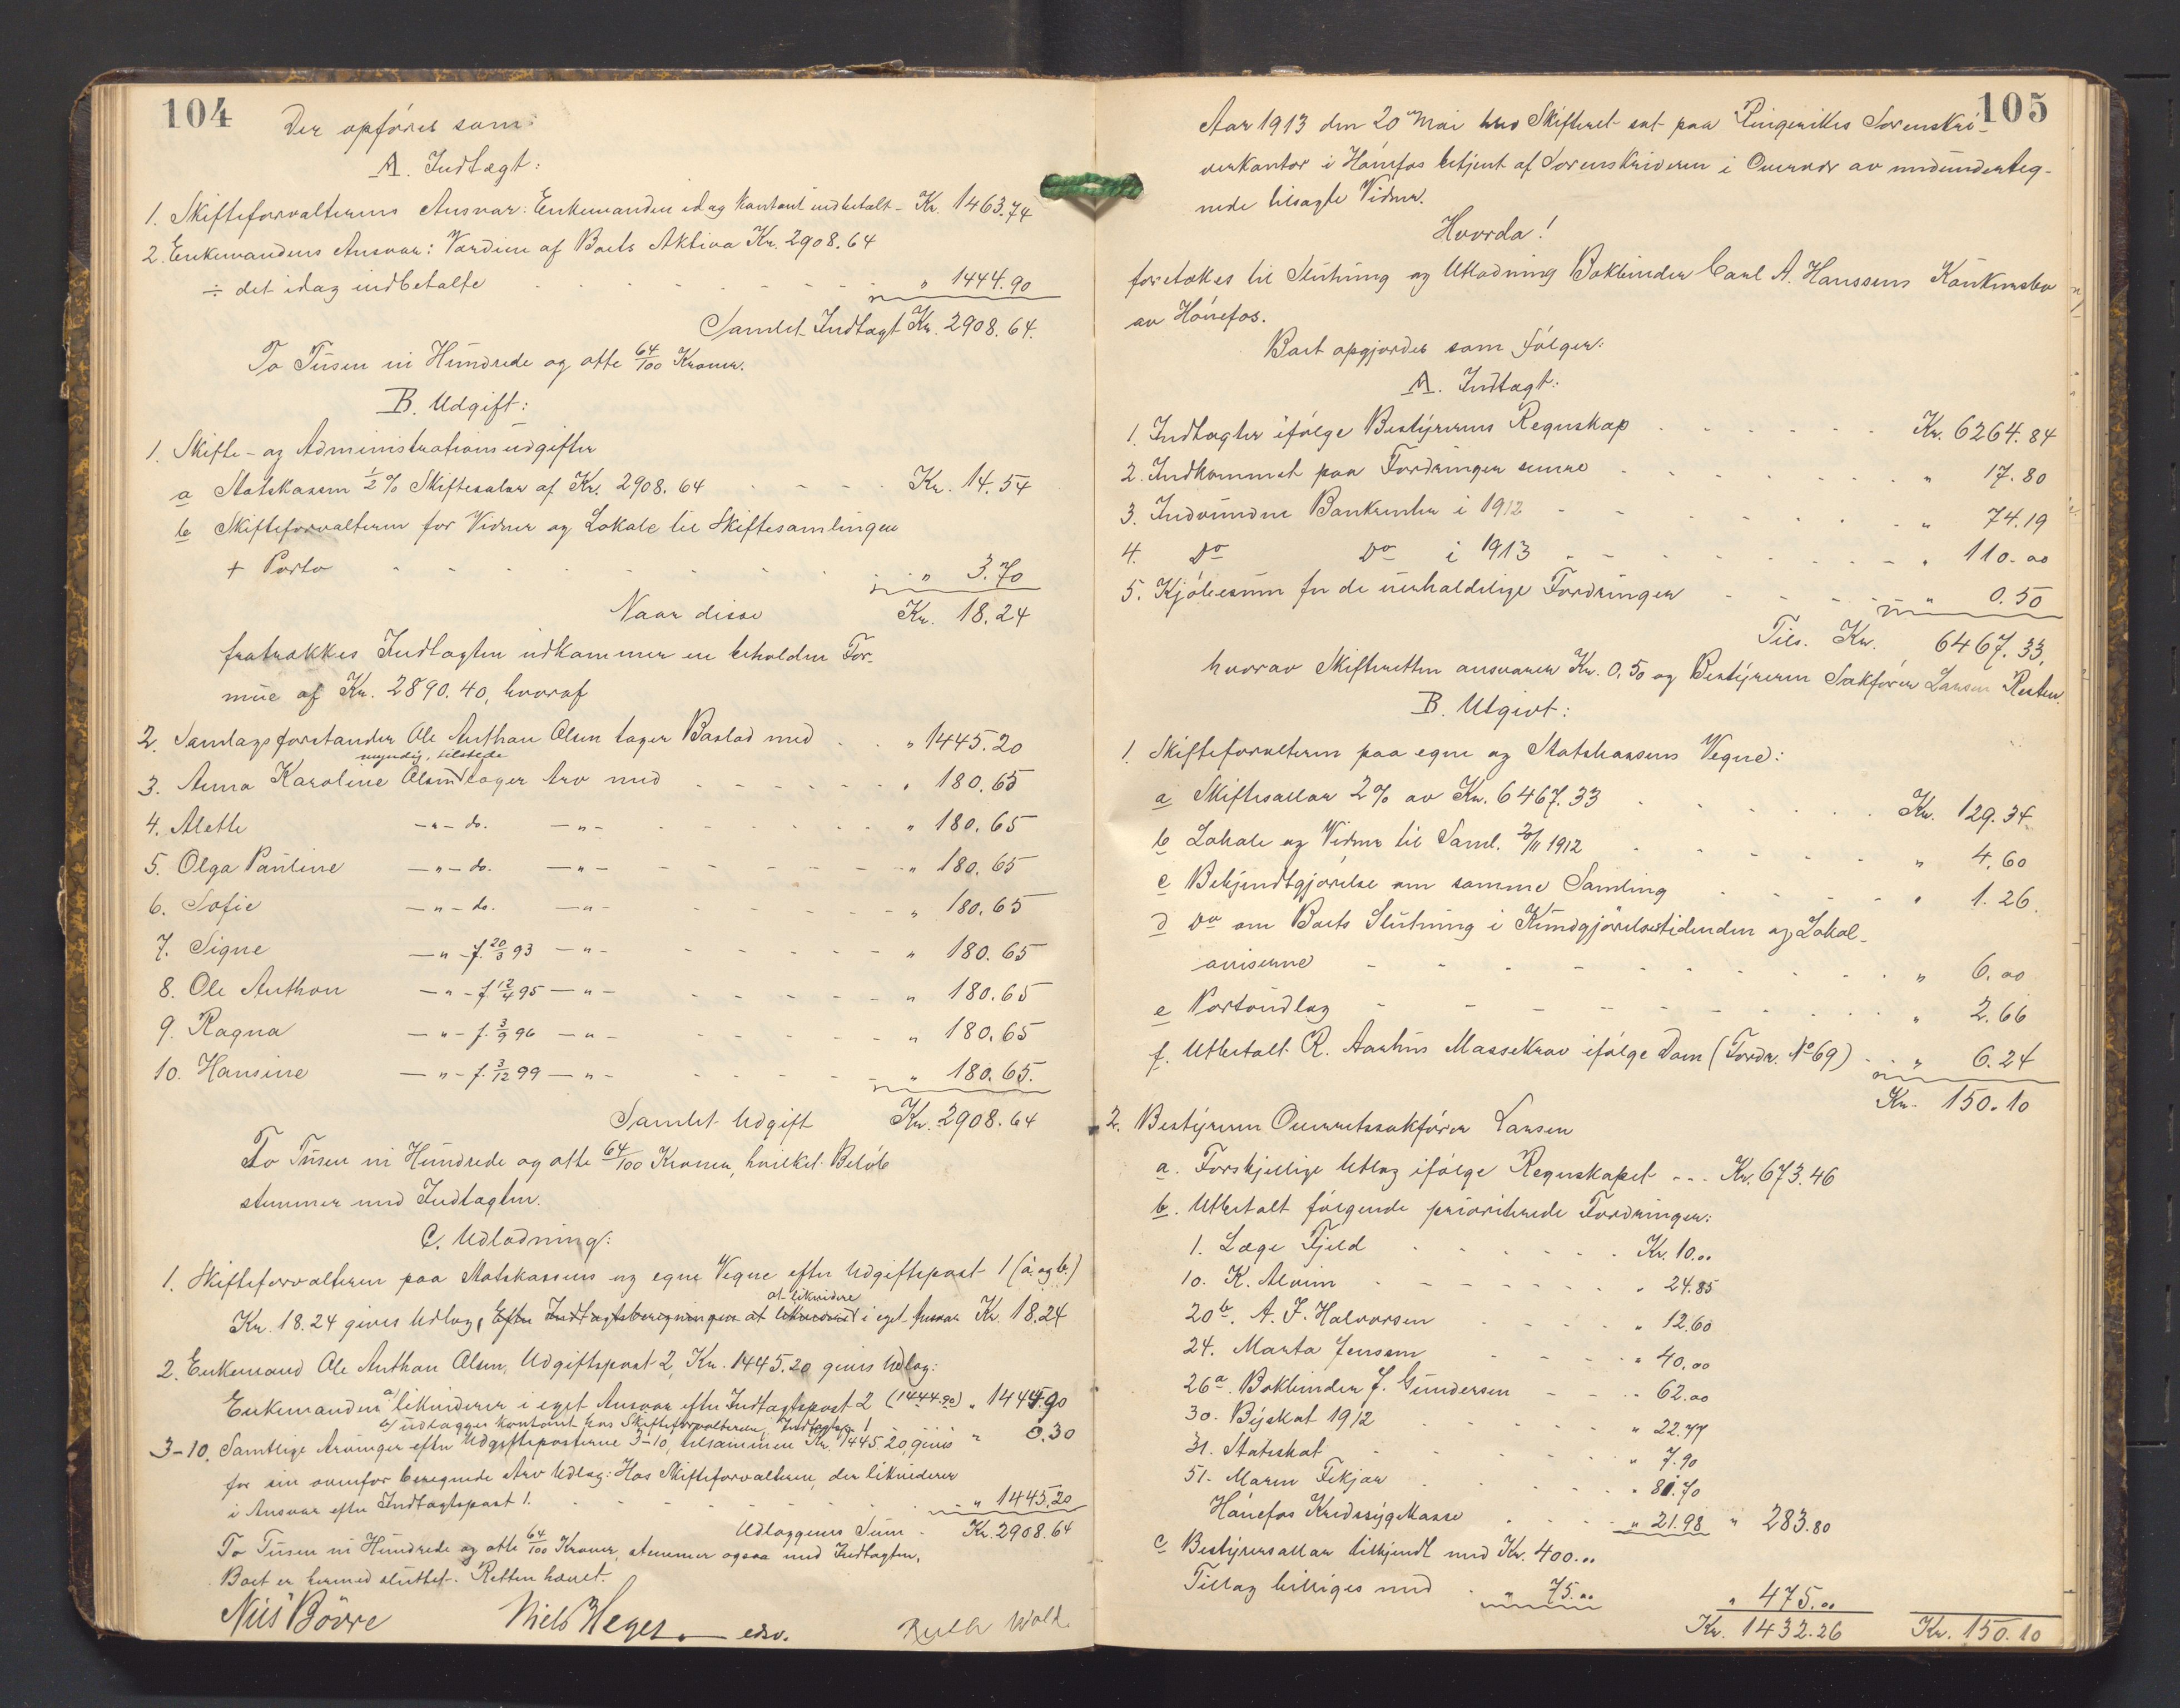 104
Der opføres som:
A. Indtægt:
1. Skifteforvalterens Ansvar: Enkemanden idag kontant indbetalt - Kr. 1463.74
2. Enkemandens Ansvar: Værdien af Boets Aktiva Kr. 2908.64
÷ det idag indbetalte " 1444.90
Samlet Indtægt Kr. 2908.64.
To Tusen ni Hundrede og otte 64/100 Kroner.
B. Udgift:
1. Skifte- og Administrationsudgifter
a Statskassen 1/2 % Skiftesalær af Kr. 2908.64 Kr. 14.54
b Skifteforvalteren for Vidner og Lokale til Skiftesamlingen
+ Porto " 3.70
Naar disse Kr. 18.24
fratrækkes Indtægten udkommer en beholden For-
mue af Kr. 2890.40, hvoraf
2. Samlagsforstander Ole Anthon Olsen tager Boslod med " 1445.20
myndig, tilstede
3. Anna Karoline Olsen tager Arv med " 180.65
4. Alette —"— do. —"— " 180.65
5. Olga Pauline —"— do. —"— " 180.65
6. Sofie —"— do. —"— " 180.65
7. Signe —"— f. 20/3 93 —"— " 180.65
8. Ole Anthon —"— f. 12/4 95 —"— " 180.65
9. Ragna —"— f. 3/9 96 —"— " 180.65
10. Hansine —"— f. 3/12 99 —"— " 180.65.
Samlet Udgift Kr. 2908.64
To Tusen ni Hundrede og otte 64/100 Kroner, hvilket Beløb
stemmer med Indtægten.
C. Udlodning:
1. Skifteforvalteren paa Statskassens og egne Vegne efter Udgiftspost 1 (a. og b.)
at likvidere
Kr. 18.24 gives Udlæg, Efter Indtægtsberegningen at likvidere i eget Ansvar Kr. 18.24
2. Enkemand Ole Anthon Olsen, Udgiftspost 2, Kr. 1445.20 givis Udlæg:
Enkemanden a/ likviderer i eget Ansvar efter Indtægtspost 2 (1444.90) " 1444.90
b/ udlægges kontant hos Skifteforvalteren, Indtægtspost 1 " 0.30
3-10. Samtlige Arvinger efter Udgiftsposterne 3-10, tilsammen Kr. 1445.20, givis
for sin ovenfor beregnede Arv Udlæg: Hos Skifteforvalteren, der likviderer
i Ansvar efter Indtægtspost 1. " 1445.20
Udlæggenes Sum - Kr. 2908.64
To Tusen ni Hundrede og otte 64/100 Kroner, stemmer ogsaa med Indtægten.
Boet er hermed sluttet. Retten hævet.
Nils Børre Niels Heyer edsv. Ruth Wolk.
105
Aar 1913 den 20 Mai blev Skifteret sat paa Ringerikes Sorenskri-
verkontor i Hønefos betjent af Sorenskriveren i Overvær av medunderteg-
nede tilsagte Vidner.
Hvorda!
foretokes til Slutning og Utlodning Bokbinder Carl A. Hanssens Konkursbo
av Hønefos.
Boet opgjordes som følger:
A. Indtægt:
1. Indtægter ifølge Bestyrerens Regnskap Kr. 6264.84
2. Indkommet paa Fordringer senere " 17.80
3. Indvundne Bankrenter i 1912 " 74.19
4. Do Do i 1913 " 110.00
5. Kjøbesum for de uerholdelige Fordringer " 0.50
Tils. Kr. 6467.33.
hvorav Skifteretten ansvarer Kr. 0.50 og Bestyreren Sakfører Larsen Resten.
B. Utgivt:
1. Skifteforvalteren paa egne og Statskassens Vegne:
a Skiftesallær 2% av Kr. 6467.33 Kr. 129.34
b Lokale og Vidner til Saml. 20/11 1912 " 4.60
c Bekjendtgjørelse om samme Samling " 1.26
d Do om Boets Slutning i Kundgjørelsestidenden og Lokal-
aviserne " 6.00
e Portoudlæg " 2.66
f. Utbetalt R. Aarhus Massekrav ifølge Dom (Fordr. No 69) " 6.24
Kr. 150.10
2. Bestyreren Overretssakfører Larsen
a. Forskjellige Utlæg ifølge Regnskapet --- Kr. 673.46
b. Utbetalt følgende prioriterede Fordringer:
1. Læge Fjeld Kr. 10.00
10. K. Alvim " 24.85
20b. A. F. Halvorsen " 12.60
24. Marta Jensen " 40.00
26a. Bokbinder J. Gundersen " 62.00
30. Byskat 1912 " 22.77
31. Statsskat " 7.90
51. Maren Fekjær " 81.70
Hønefos Kredssygekasse " 21.98 " 283.80
c Bestyrersallær tilkjendt med Kr. 400.00
Tillæg billiges med " 75.00 " 475.00
Kr. 1432.26 Kr. 150.10